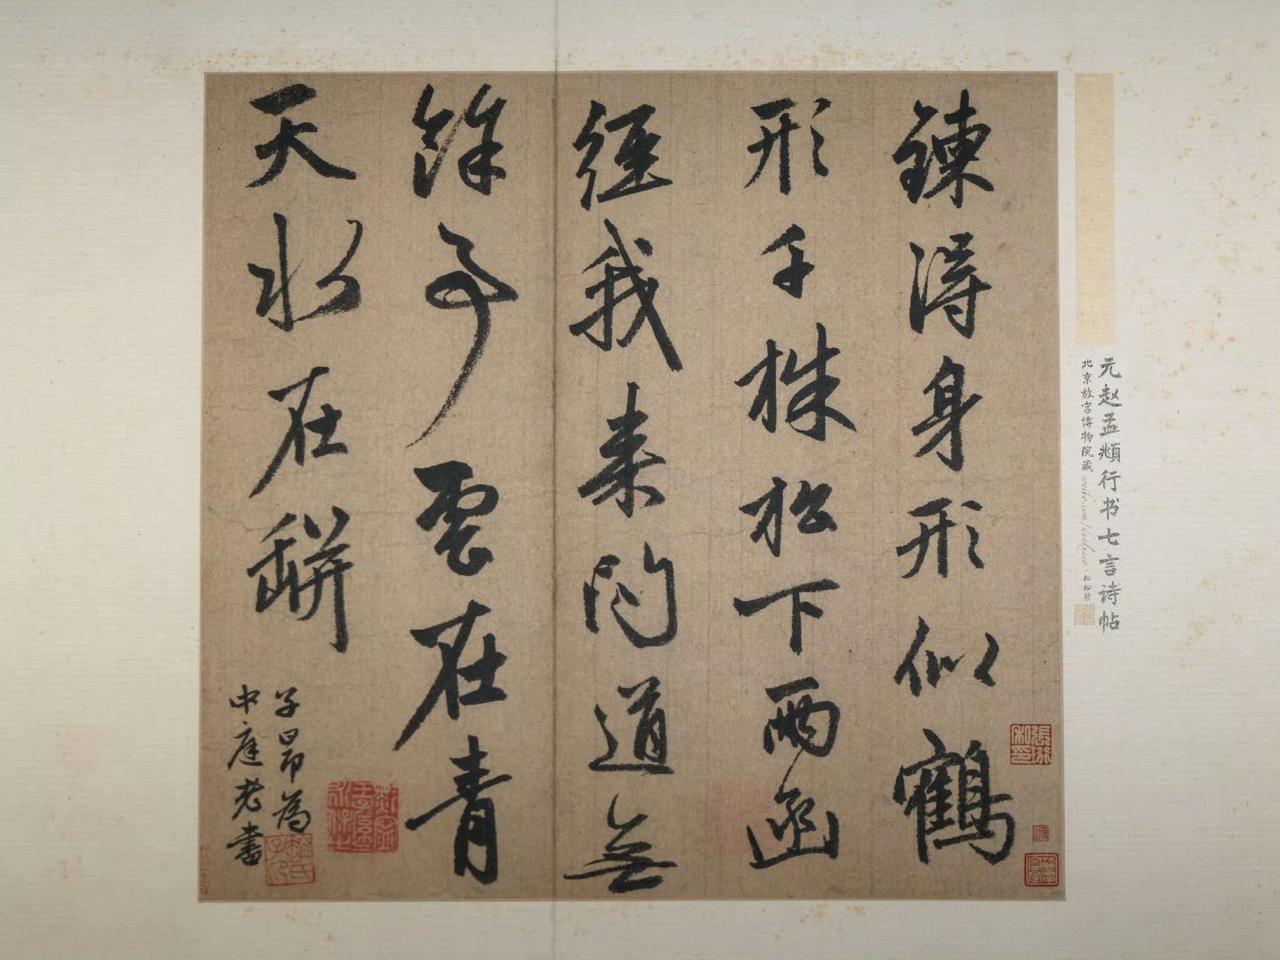 元赵孟頫行书七言诗帖
北京故宫博物院藏
鍊得身形似鶴
形千株松下兩函
經我来问道無
餘事雲在青
天水在缾
子昂為
中庭老書